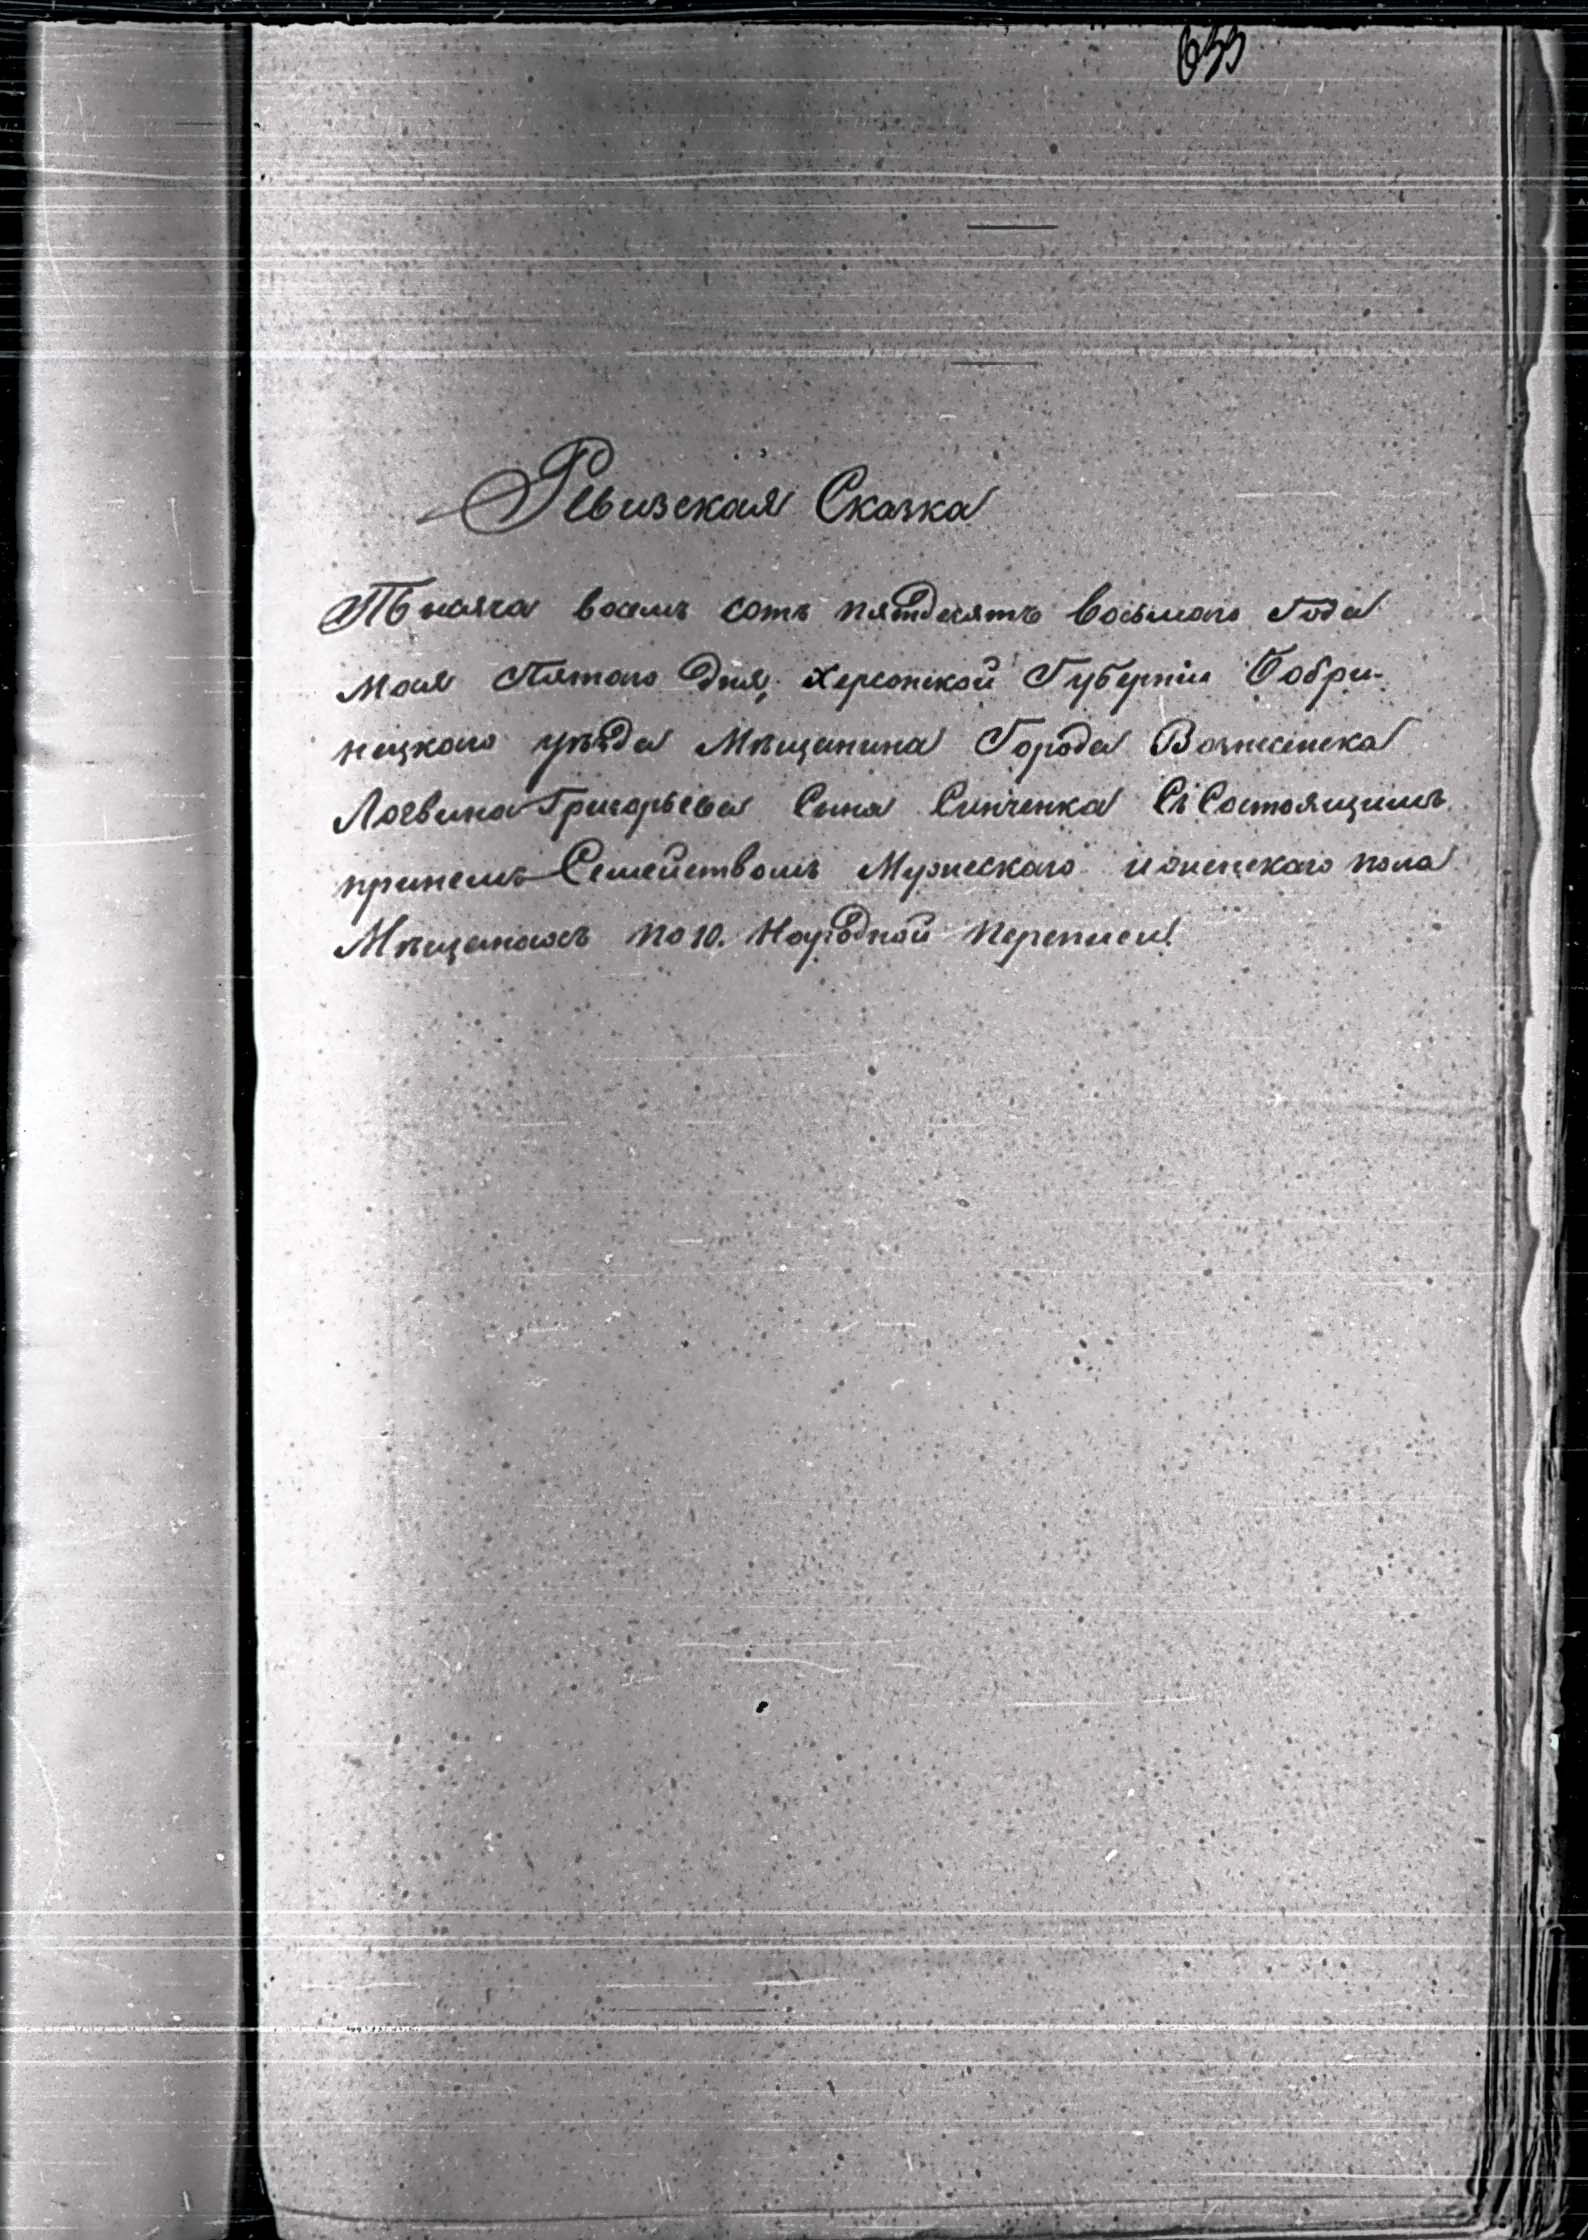 633
Ревизская Сказка
Тысяча восемь сотъ пятдесятъ восьмаго Года
Мая Пятаго Дня, Херсонской Губерніи Бобри-
нецкаго уѣзда Мѣщанина Города Вознесенска
Логвина Григорьева Сына Синченка Съ Состоящимъ
принемъ Семействомъ Мужескаго иженскаго пола
Мѣщанахъ по 10. Народной переписи